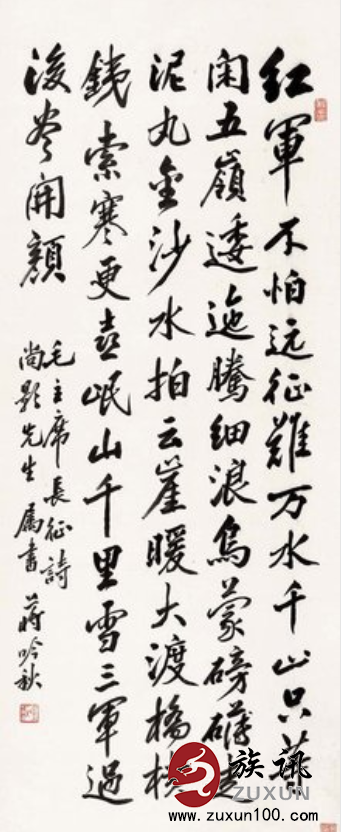 红軍不怕远征難万水千山只等
闲五嶺逶迤騰细浪烏蒙磅礴走
泥丸金沙水拍云崖暖大渡橋横
銕索寒更喜岷山千里雪三軍過
後尽開顔
毛主席長征詩
尚影先生属書 蒋吟秋
族讯
ZUXUN
www.zuxun100.com